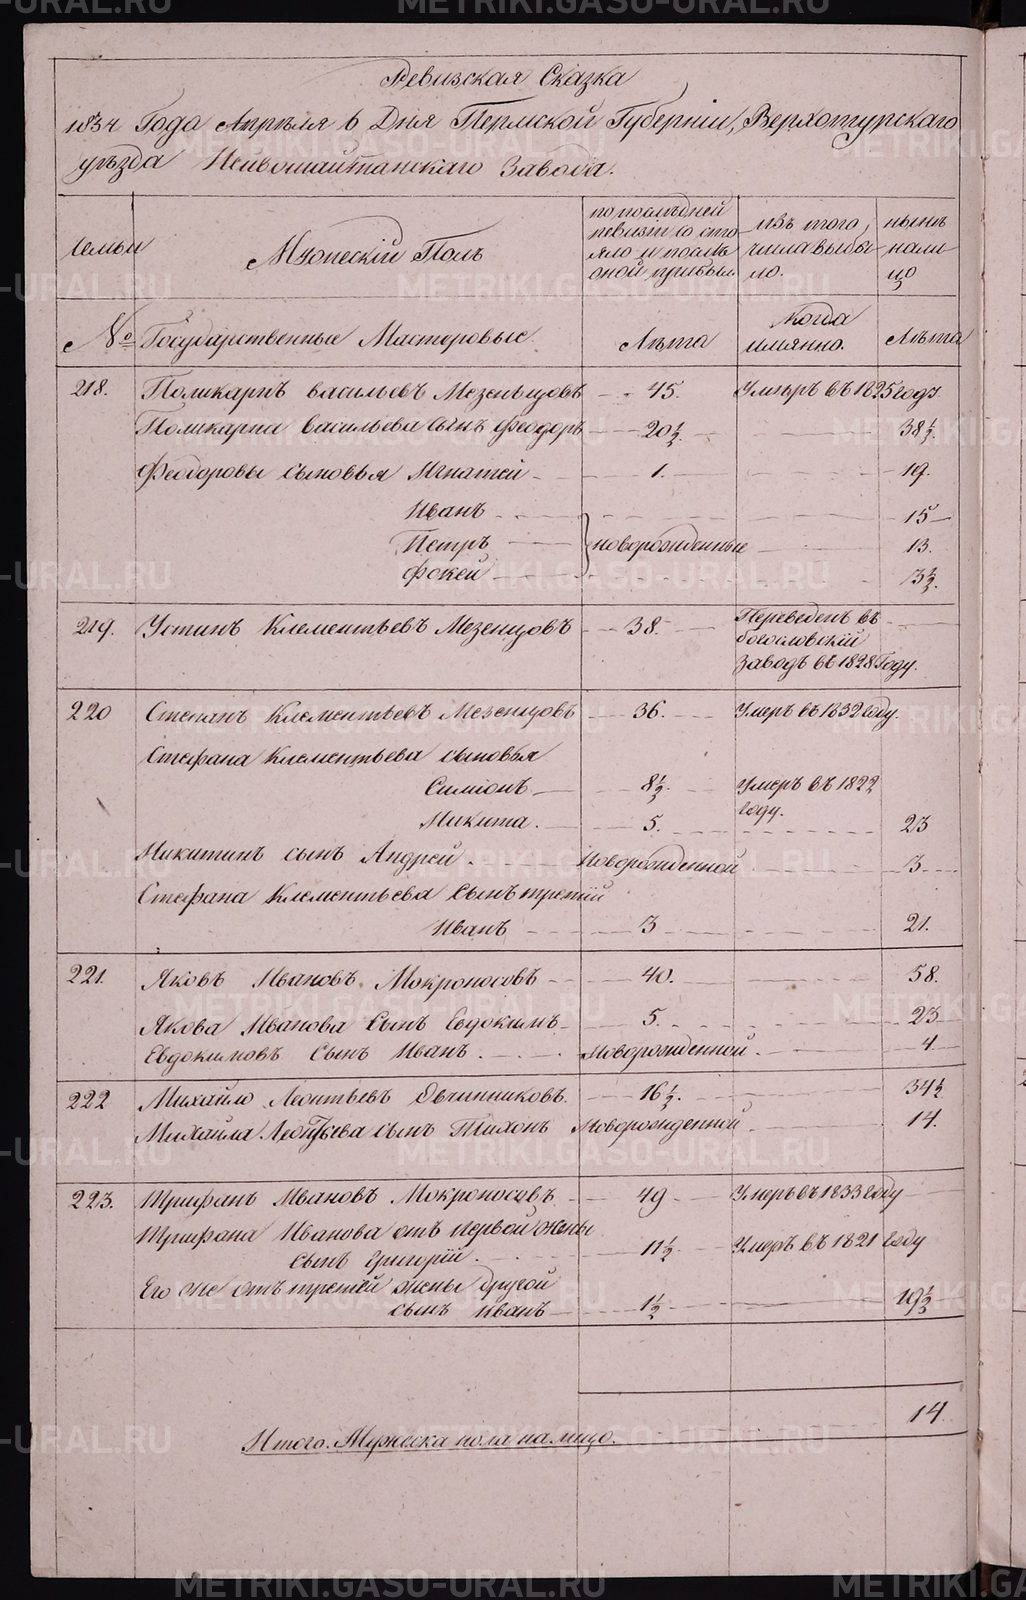 Ревизская Сказка
1834 Года Апреля 6 Дня Пермской Губернии, Верхотурскаго
уезда Нейвошайтанскаго Завода.
Семьи
Мужескій Полъ
по последней ревизіи состояло и после оной прибыло
изъ того числа выбыло.
ныне налицо
№ Государственные Мастеровые.
Лета
когда имянно.
Лета
218. Поликарпъ васильевъ Мезенцовъ 45. Умеръ въ 1825 годе
Поликарпа васильева сынъ Феодоръ 20½ 38½.
Феодоровы сыновья Игнатей 1. 19.
Иванъ 15
Петръ новорожденные 13.
Фокей 3½.
219. Устинъ Клементьевъ Мезенцовъ 38. Переведенъ въ
богословскій
заводъ въ 1828 Году.
220 Степанъ Клементьевъ Мезенцовъ 36. Умеръ въ 1832 году.
Стефана Клементьева сыновья
Симіонъ 8½. Умеръ въ 1822
году.
Микита. 5. 23
Микитинъ сынъ Андрей. Новорожденной 3.
Стефана Клементьева Сынъ третій
Иванъ 3 21.
221. Яковъ Ивановъ Мокроносовъ 40. 58.
Якова Иванова Сынъ Евдокимъ 5. 23
Евдокимовъ Сынъ Иванъ. Новорожденной. 4
222 Михайло Леонтьевъ Овчинниковъ. 16½. 34½
Михайла Леонтьева сынъ Тихонъ Новорожденной. 14.
223. Трифанъ Ивановъ Мокроносовъ 49 Умеръ въ 1833 году
Трифана Иванова отъ первой жены
сынъ Григорій. 11½. Умеръ въ 1821 году
Его же отъ третей жены другой
сынъ Иванъ 1½ 19½
14.
Итого. Мужеска пола налицо.
METRIKI.GASO-URAL.RU